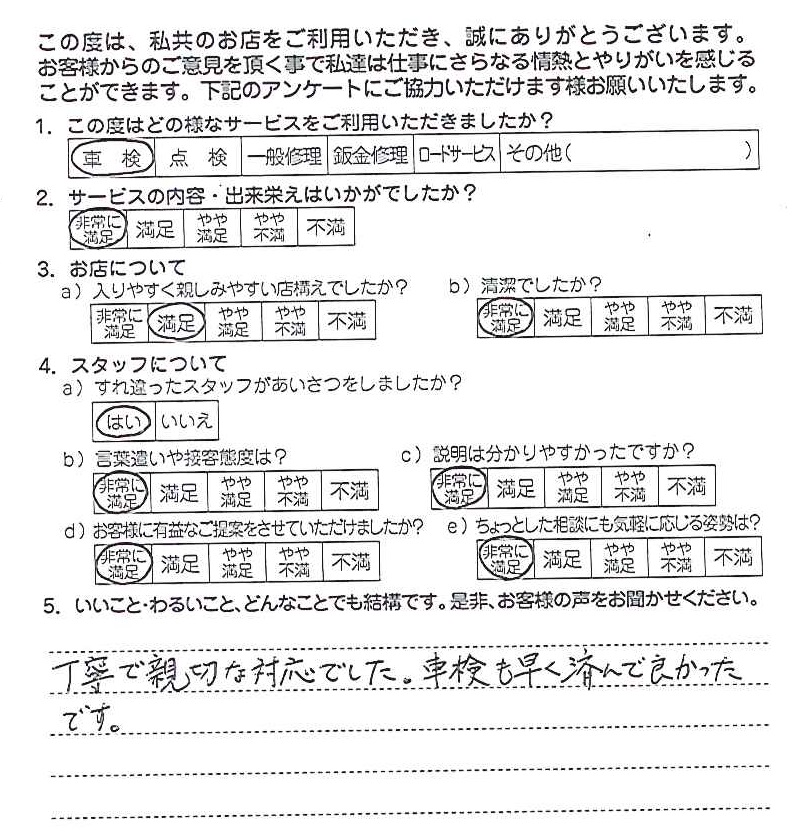 この度は、私共のお店をご利用いただき、誠にありがとうございます。
お客様からのご意見を頂く事で私達は仕事にさらなる情熱とやりがいを感じる
ことができます。下記のアンケートにご協力いただけます様お願いいたします。
1. この度はどの様なサービスをご利用いただきましたか？
車検 点検 一般修理 鈑金修理 ロードサービス その他( )
2. サービスの内容・出来栄えはいかがでしたか？
非常に満足 満足 やや満足 やや不満 不満
3. お店について
a）入りやすく親しみやすい店構えでしたか？ b）清潔でしたか？
非常に満足 満足 やや満足 やや不満 不満 非常に満足 満足 やや満足 やや不満 不満
4. スタッフについて
a）すれ違ったスタッフがあいさつをしましたか？
はい いいえ
b）言葉遣いや接客態度は？ c）説明は分かりやすかったですか？
非常に満足 満足 やや満足 やや不満 不満 非常に満足 満足 やや満足 やや不満 不満
d）お客様に有益なご提案をさせていただけましたか？ e）ちょっとした相談にも気軽に応じる姿勢は？
非常に満足 満足 やや満足 やや不満 不満 非常に満足 満足 やや満足 やや不満 不満
5. いいこと・わるいこと、どんなことでも結構です。是非、お客様の声をお聞かせください。
丁寧で親切な対応でした。車検も早く済んで良かった
です。